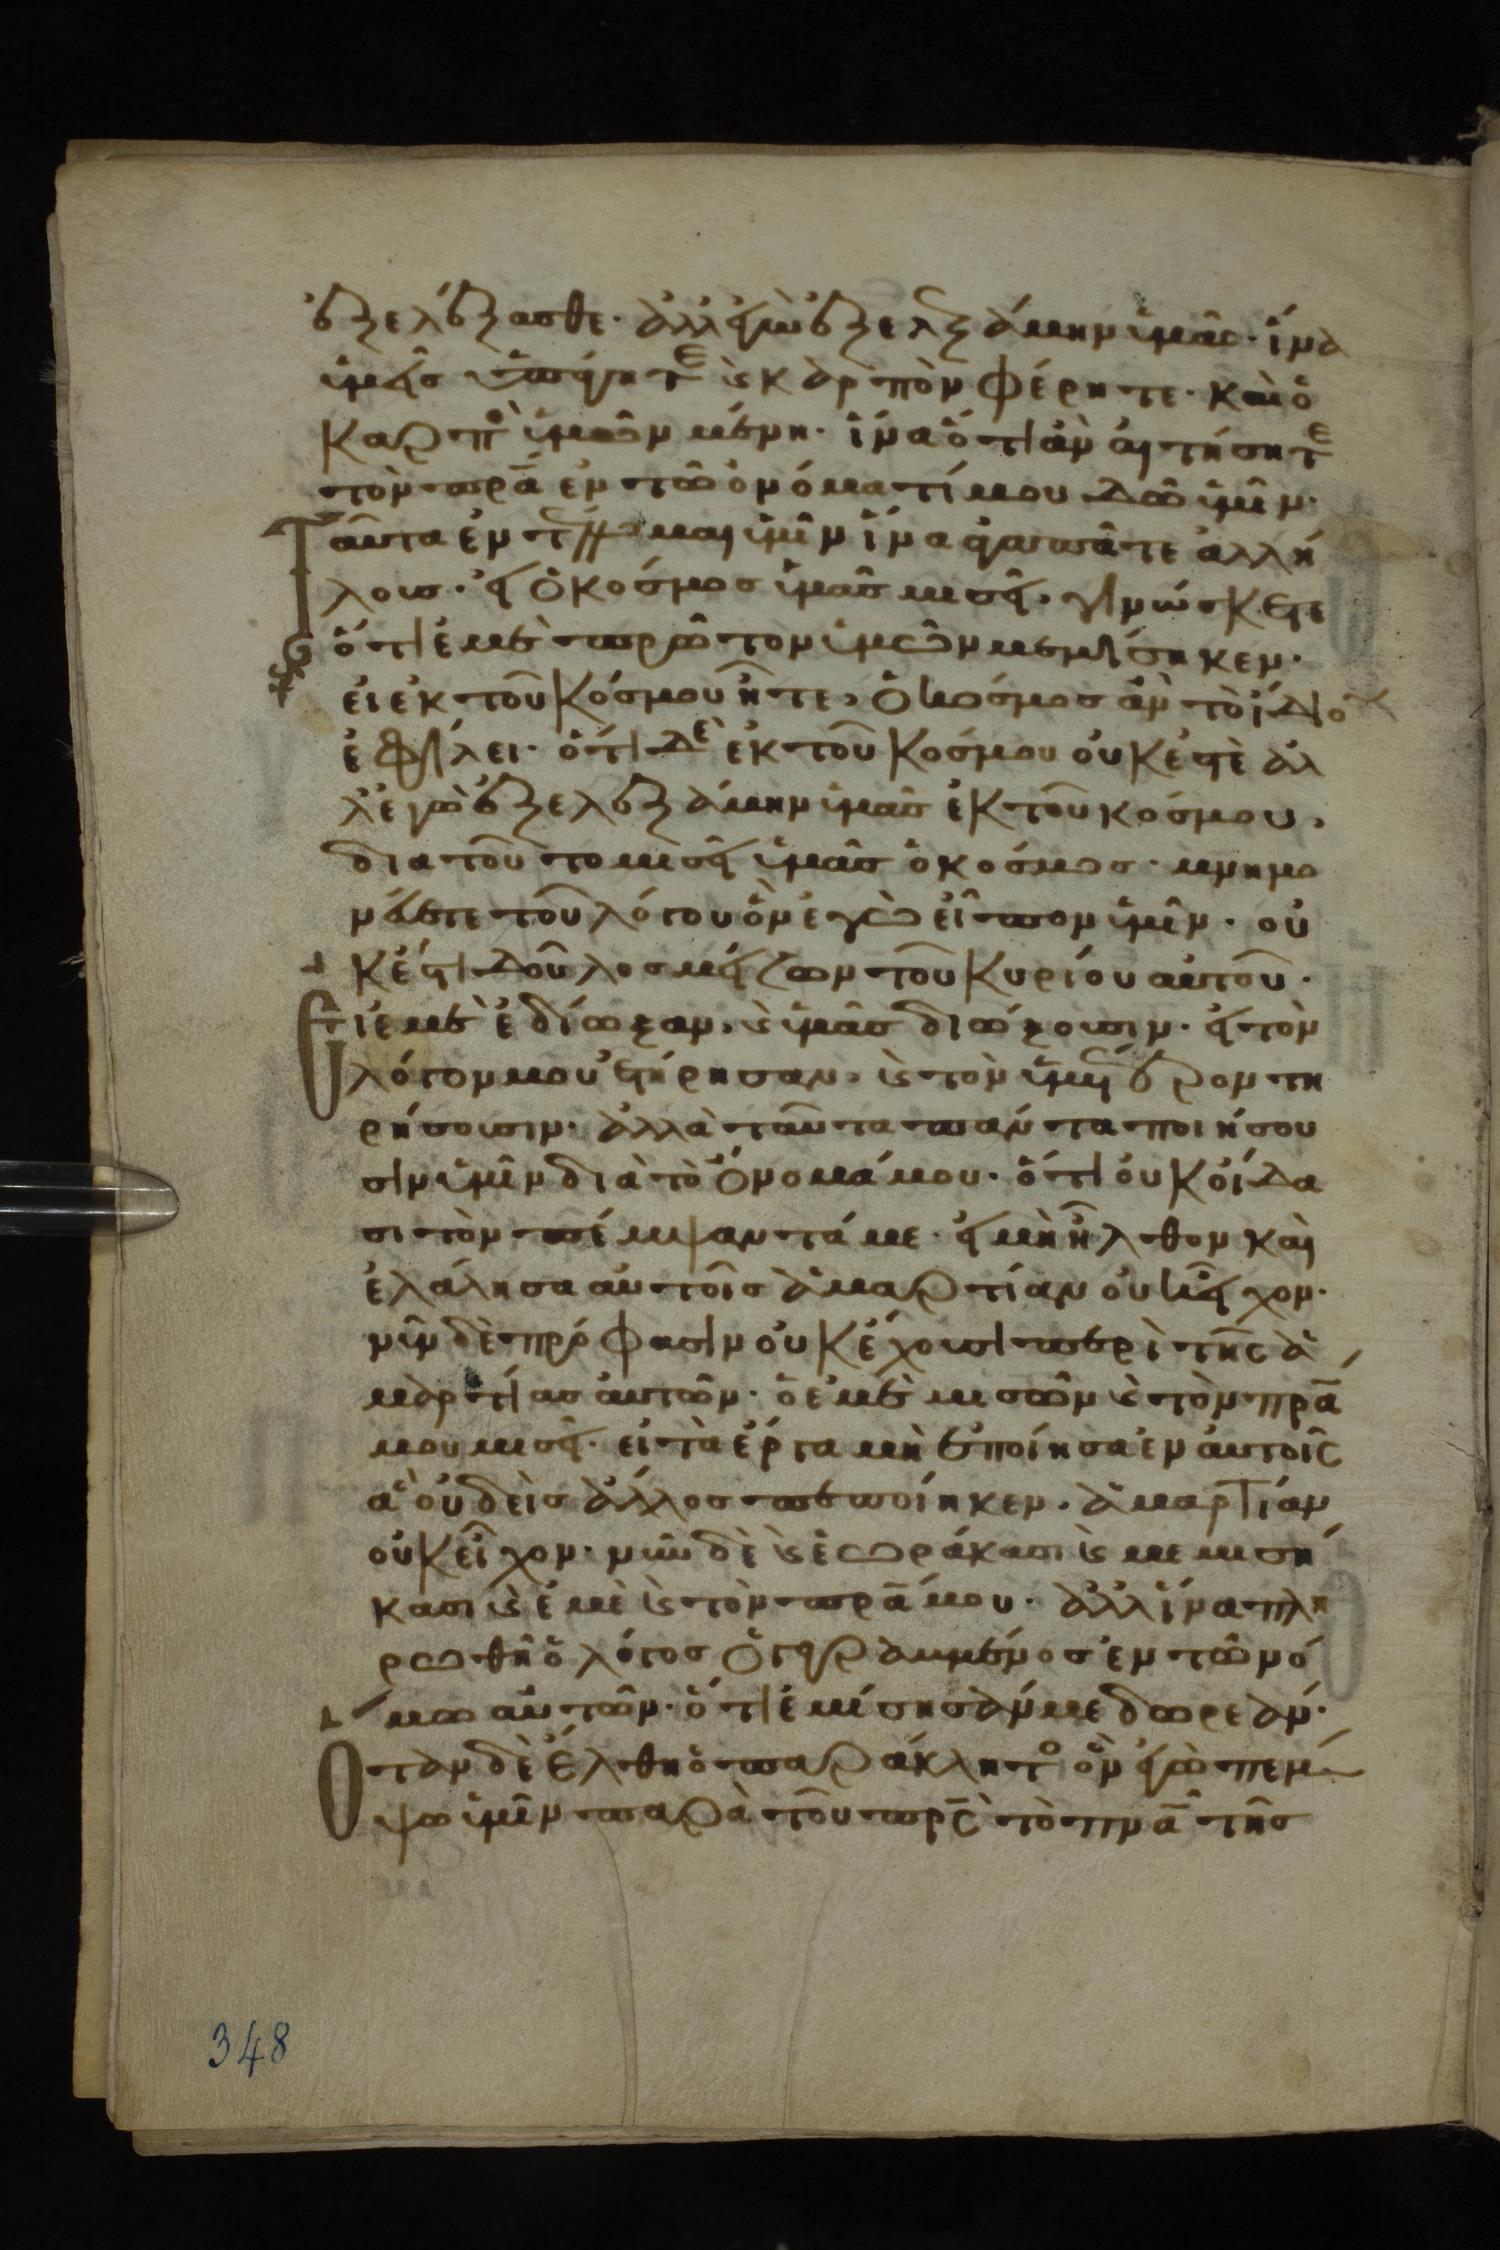 ἐξελέξασθε· ἀλλ' ἐγὼ ἐξελεξάμην ὑμᾶς· ἵνα
ὑμεῖς ὑπάγητε κ καρπὸν φέρητε· καὶ ὁ
καρπὸ ὑμῶν μένη· ἵνα ὅτι ἂν αἰτήσητε
τὸν πρᾱ ἐν τῶ ὀνόματί μου δῶ ὑμῖν·
Ταῦτα ἐντέλλομαι ὑμῖν ἵνα ἀγαπᾶτε ἀλλή
λους· εἰ ὁ κόσμος ὑμᾶς μισεῖ, γινώσκετε
ὅτι ἐμὲ πρῶτον ὑμῶν μεμίσηκεν·
εἰ ἐκ τοῦ κόσμου ἦτε, ὁ κόσμος ἂν τὸ ἴδιο
ἐφίλει· ὅτι δὲ ἐκ τοῦ κόσμου οὐκ ἐστὲ ἀλ
λ' ἐγὼ ἐξελεξάμην ὑμᾶς ἐκ τοῦ κόσμου,
διατοῦτο μισεῖ ὑμᾶς ὁ κόσμος· μνημο
νεύετε τοῦ λόγου ὃν ἐγὼ εἶπον ὑμῖν· οὐ
κ ἔστι δοῦλος μείζων τοῦ κυρίου αὐτοῦ·
Εἰ ἐμὲ ἐδίωξαν, κ ὑμᾶς διώξουσιν· εἰ τὸν
λόγον μου ἐτήρησαν, κ τὸν ὑμέτερον τη
ρήσουσιν· ἀλλὰ ταῦτα πάντα ποιήσου
σιν ὑμῖν διὰ τὸ ὄνομά μου· ὅτι οὐκ οἴδα
σι τὸν πέμψαντά με· εἰ μὴ ἦλθον καὶ
ἐλάλησα αὐτοῖς ἁμαρτίαν οὐκ εἶχον·
νῦν δὲ πρόφασιν οὐκ ἔχουσι περὶ τῆς ἁ
μαρτίας αὐτῶν· ὁ ἐμὲ μισῶν κ τὸν πρᾱ
μου μισεῖ· εἰ τὰ ἔργα μὴ ἐποίησα ἐν αὐτοῖς
ἃ οὐδεὶς ἄλλος πεποίηκεν, ἁμαρτίαν
οὐκ εἶχον· νῦν δὲ κ ἑωράκασι κ μεμισή
κασι κ ἐμὲ κ τὸν πρᾱ μου· ἀλλ' ἵνα πλη
ρωθῆ ὁ λόγος ὁ γεγραμμένος ἐν τῶ νό
μω αὐτῶν· ὅτι ἐμίσησάν με δωρεάν·
Ὅταν δὲ ἔλθη ὁ παράκλητο ὃν ἐγὼ πέμ
ψω ὑμῖν παρὰ τοῦ πρ̄ς τὸ πνᾱ τῆς
348